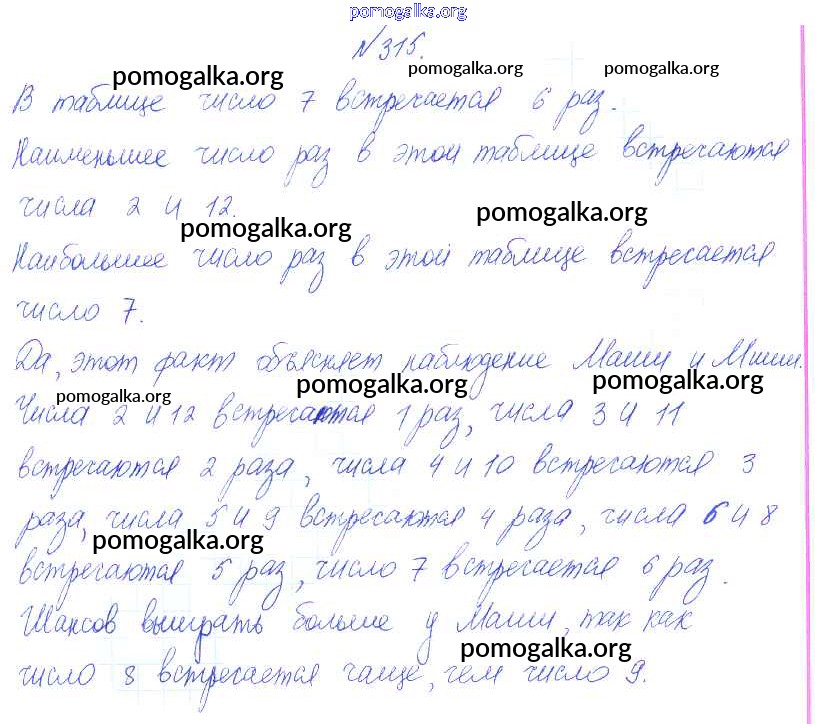 pomogalka.org
№315.
pomogalka.org pomogalka.org pomogalka.org
В таблице число 7 встречается 6 раз.
Наименьшее число раз в этой таблице встречаются
числа 2 и 12.
pomogalka.org pomogalka.org
Наибольшее число раз в этой таблице встресается
число 7.
Да, этот факт объясняет наблюдение Маши и Миши.
pomogalka.org pomogalka.org pomogalka.org
Числа 2 и 12 встресаются 1 раз, числа 3 и 11
встречаются 2 раза, числа 4 и 10 встречаются 3
раза, числа 5 и 9 встресаются 4 раза, числа 6 и 8
pomogalka.org
встречаются 5 раз, число 7 встречается 6 раз.
Шансов выиграть больше у Маши, так как
pomogalka.org
число 8 встречается чаще, чем число 9.